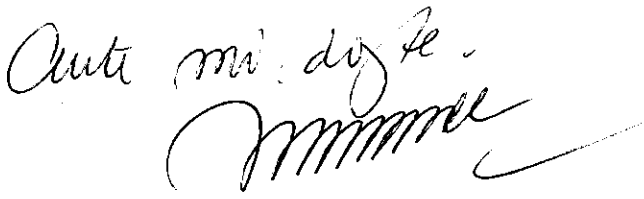 Ante mi. doy fe.